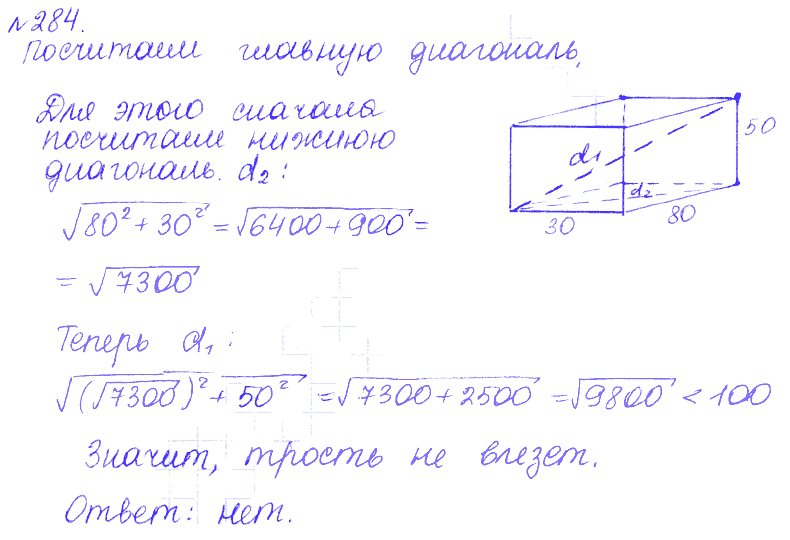 №284.
Посчитаем главную диагональ,
Для этого сначала
посчитаем нижнюю
диагональ. d₂:
√(80² + 30²) = √(6400 + 900) =
= √7300
Теперь d₁:
√((√7300)² + 50²) = √(7300 + 2500) = √9800 < 100
Значит, трость не влезет.
Ответ: нет.
d₁
50
d₂
30
80